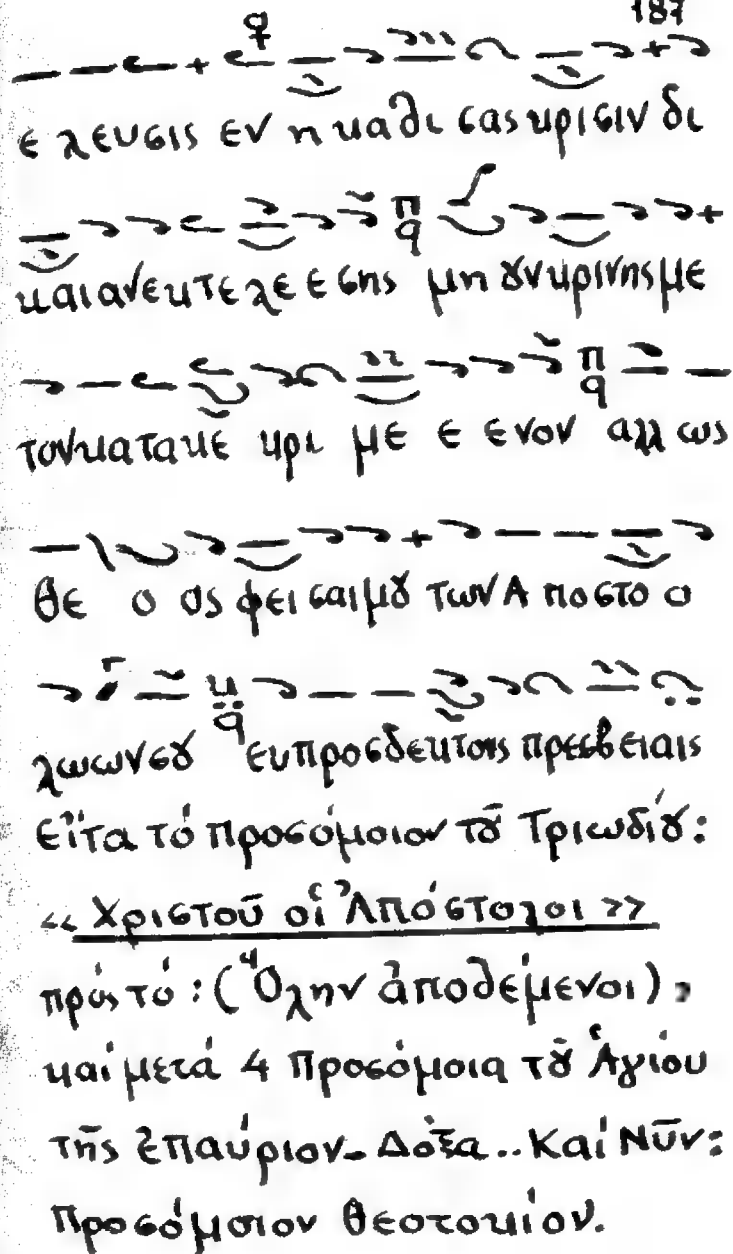 187
ε λευσις εν η καθι σας κρισιν δι
και αν εκτε λε ε σης μη ȣν κρινης με
τον κατακε κρι με ε ενον αλλ ως
θε ο ος φει σαι μȣ των Α ποστο ο
λωων σȣ ευπροσδεκτοις πρεσβειαις
εἶτα τό προσόμοιον τȣ͂ Τριωδίȣ:
«Χριστοῦ οἱ Ἀπόστολοι»
πρός τό: (Ὅλην ἀποθέμενοι),
καί μετά 4 Προσόμοια τȣ͂ Ἁγίου
τῆς ἐπαύριον- Δόξα.. Καί Νῦν:
Προσόμοιον Θεοτοκίον.